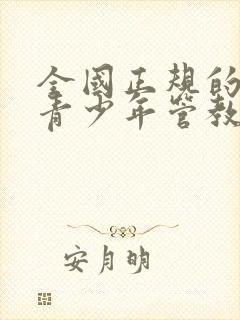 全國正規的
青少年管教
安月明